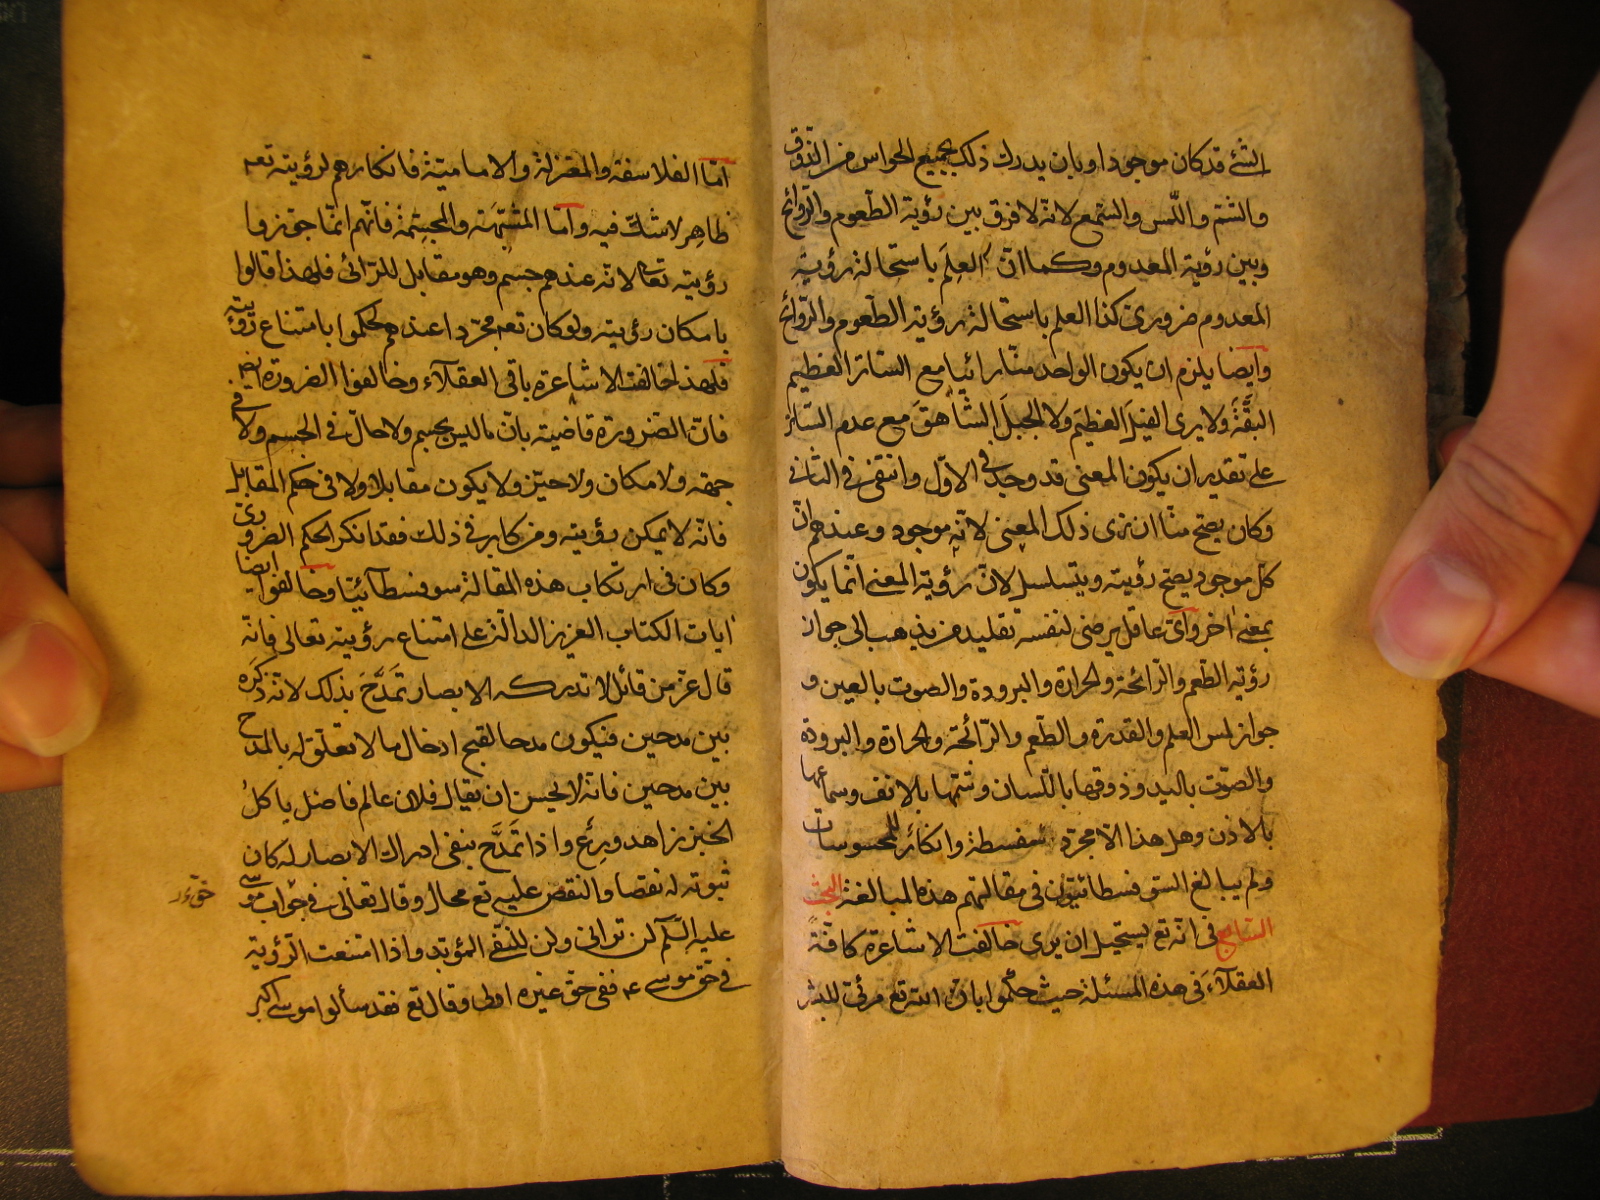 الشئ قد كان موجودا وبان يدرك ذلك بجميع الحواس من الذوق
والشم واللمس والسمع لانه لا فرق بين رؤية الطعوم والروائح
وبين رؤية المعدوم وكما ان العلم باستحالة رؤية
المعدوم ضرورى كذا العلم باستحالة رؤية الطعوم والروائح
وايضا يلزم ان يكون الواحد منا رائيا مع الساتر العظيم
البقة ولا يرى الفيل العظيم ولا الجبل الشاهق مع عدم الساتر
على تقدير ان يكون المعنى قد وجد فى الاول وانتفى فى الثانى
وكان يصح منا ان نرى ذلك المعنى لانه موجود وعندهم ان
كل موجود يصح رؤيته ويتسلسل لان رؤية المعنى انما يكون
بمعنى اخر واى عاقل يرضى لنفسه تقليد من يذهب الى جواز
رؤية الطعم والرائحة والحرارة والبرودة والصوت بالعين و
جواز لمس العلم والقدرة والطعم والرائحة والحرارة والبرودة
والصوت باليد وذوقها باللسان وشمها بالانف وسماعها
بالاذن وهل هذا الا مجرد سفسطة وانكار للمحسوسات
ولم يبالغ السوفسطائيون فى مقالتهم هذه المبالغة البحث
السابع فى انه تع يستحيل ان يرى خالفت الاشاعرة كافة
العقلاء فى هذه المسئلة حيث حكموا بان الله تع مرئى للبشر
اما الفلاسفة والمعتزلة والامامية فانكارهم لرؤيته تعه
ظاهر لا شك فيه واما المشبهة والمجسمة فانهم انما جوزوا
رؤيته تعا لانه عندهم جسم وهو مقابل للرائى فلهذا قالوا
بامكان رؤيته ولو كان تعه مجردا عندهم لحكموا بامتناع رؤيته
فلهذا خالفت الاشاعرة باقى العقلاء وخالفوا الضرورة ايضا
فان الضرورة قاضية بان ما ليس بجسم ولا حال فى الجسم ولا فى
جهة ولا مكان ولا حيز ولا يكون مقابلا ولا فى حكم المقابل
فانه لا يمكن رؤيته ومن كابر فى ذلك فقد انكر الحكم الضرورى
وكان فى ارتكاب هذه المقالة سوفسطائيا وخالفوا ايضا
ايات الكتاب العزيز الدالة على امتناع رؤيته تعالى فانه
قال عز من قائل لا تدركه الابصار تمدح بذلك لانه ذكره
بين مدحين فيكون مدحا لقبح ادخال ما لا تعلق له بالمدح
بين مدحين فانه لا يحسن ان يقال فلان عالم فاضل ياكل
الخبز زاهد ورع واذا تمدح بنفى ادراك الابصار له كان
ثبوته له نقصا والنقص عليه تع محال وقال تعالى فى جواب موسى
عليه السلم لن ترانى ولن للنفى المؤبد واذا امتنعت الرؤية
فى حق موسى ع ففى حق غيره اولى وقال تع فقد سألوا موسى اكبر